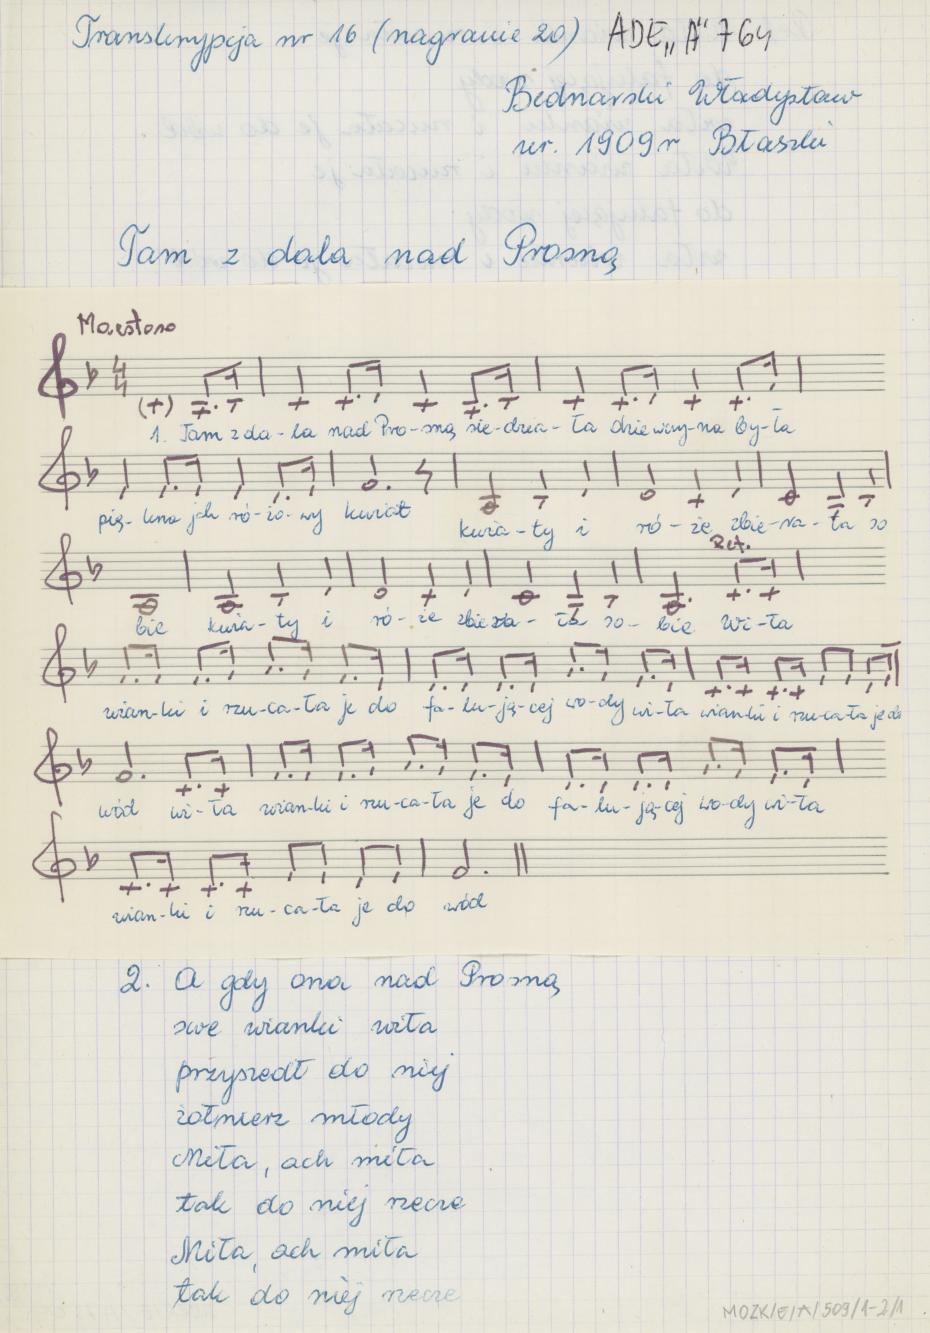 Transkrypcja nr 16 (nagranie 20) ADE „A" 764
Bednarski Władysław
ur. 1909 r Błaszki
Tam z dala nad Prosną
Maestoso
1. Tam z da-la nad Pro-sną sie-dzia-ła dziewczy-na by-ła
pię-kna jak ró-żo-wy kwiat kwia-ty i ró-że zbie-ra-ła so
Ref.
bie kwia-ty i ró-że zbiera-ła so-bie Wi-ła
wian-ki i rzu-ca-ła je do fa-lu-ją-cej wo-dy wi-ła wianki i rzu-ca-ła je do
wód wi-ła wian-ki i rzu-ca-ła je do fa-lu-ją-cej wo-dy wi-ła
wian-ki i rzu-ca-ła je do wód
2. A gdy ona nad Prosną
swe wianki wiła
przyszedł do niej
żołnierz młody
Miła, ach miła
tak do niej rzecze
Miła, ach miła
tak do niej rzecze
MOZK/E/A/509/1-2/1